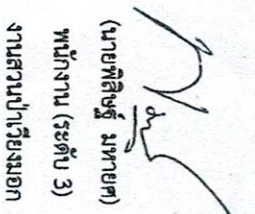 (นายพิสิษฐ์ มหายศ)
พนักงาน (ระดับ 3)
งานสวนป่าเวียงมอก